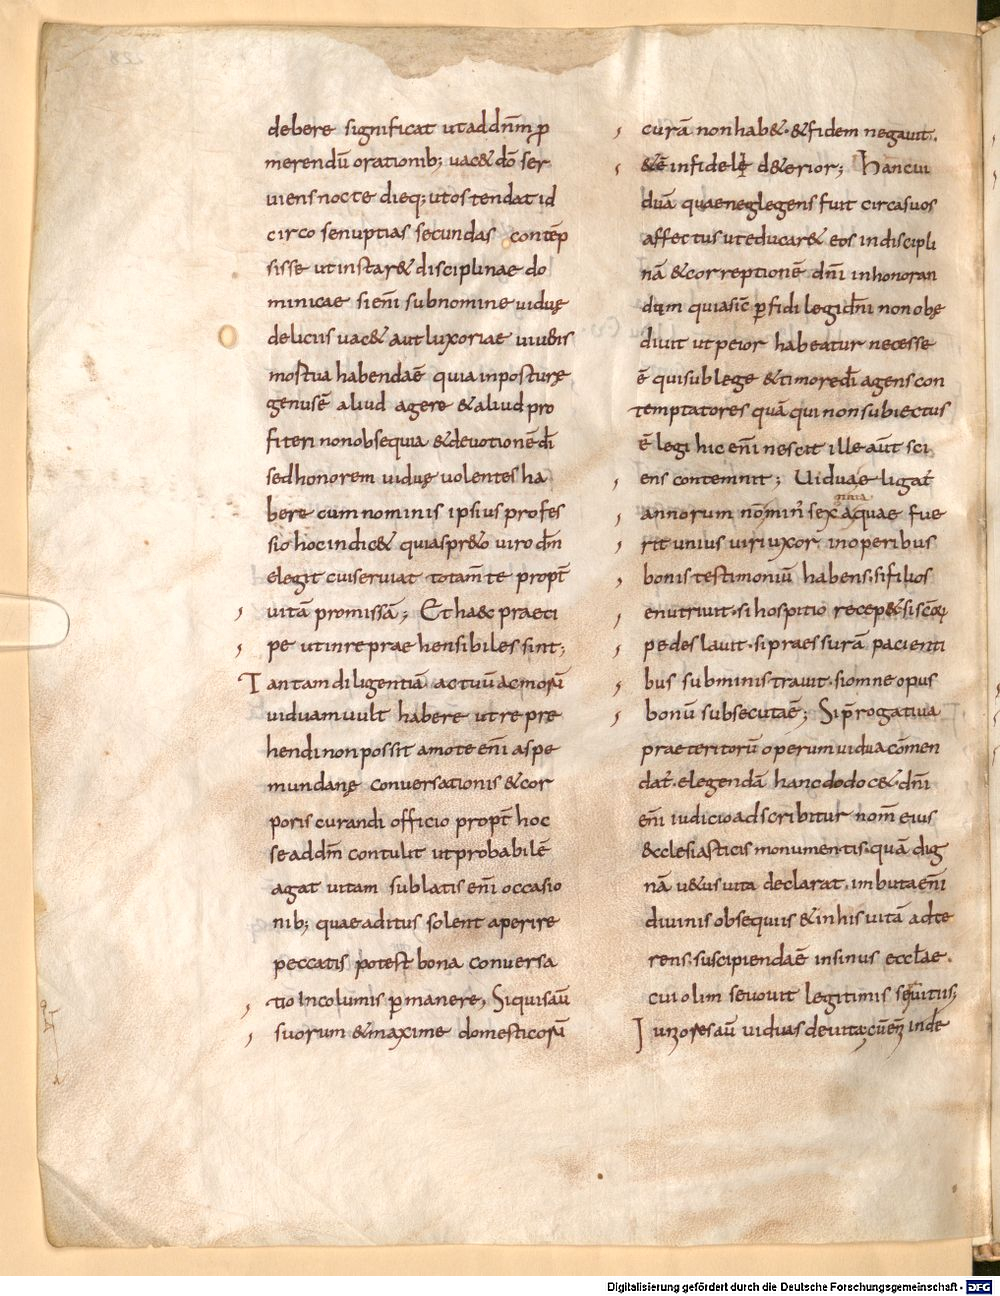 debere significat ut ad dnm p
merendū orationib; uac& dō ser
uiens nocte dieq; ut ostendat id
circo se nuptias secundas contēp
sisse ut instar& disciplinae do
minicae si eni sub nomine uiduę
deliciis uac& aut luxoriae uiuēs
mortua habenda ē quia inposturę
genus ē aliud agere & aliud pro
fiteri non obsequia & deuotionē di
sed honorem uiduę uolentes ha
bere cum nominis ipsius profes
sio hoc indic& quia spr&o uiro dm
elegit cui seruiat tota mte propt
uitā promissā; Et haec praeci
pe ut inreprae hensibiles sint;
Tantam diligentiā actuū ac morū
uiduam uult habere ut repre
hendi non possit a mote eni aspe
mundanę conuersationis & cor
poris curandi officio propt hoc
se ad dm contulit ut probabilē
agat uitam sublatis eni occasio
nib; quae aditus solent aperire
peccatis potest bona conuersa
tio incolumis pmanere, Si quis aū
suorum & maxime domesticorū
curā non hab& · & fidem negauit.
& ē infidele d&erior; Hanc ui
duā quae neglegens fuit circa suos
affectus ut educar& eos in discipli
nā & correptionē dni inhonoran
dam quia sic pfidi legi dni non obę
diuit ut peior habeatur necesse
ē qui sub lege & timore di agens con
temptatores quā qui non subiectus
ē legi hic eni nescit ille aut sci
ens contemnit; Uiduae ligat
annorum nomin sexaquae fue
ginta
rit unius uiri uxor in operibus
bonis testimoniū habens · si filios
enutriuit · si hospitio recep& si scōꝝ
pedes lauit · si praessurā pacienti
bus subministrauit · si omne opus
bonū subsecuta ē; Si prrogatiua
praeteritorū operum uidua cōmen
dat · elegendā hanc do doc& · dni
eni iudicio adscribitur nom eius
&cclesiasticis monumentis · quā dig
nā u&us uita declarat · imbuta eni
diuinis obsequiis & in his uitā adte
rens · suscipienda ē in sinus eccłae ·
cui olim seuouit legitimis seruitiis;